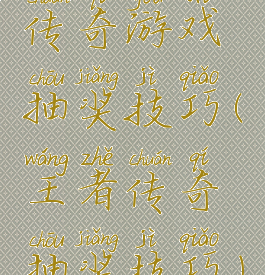 传奇游戏
chōu jiǎng jì qiǎo
抽奖技巧(
wáng zhě chuán qí
王者传奇
chōu jiǎng jì qiǎo
抽奖技巧)